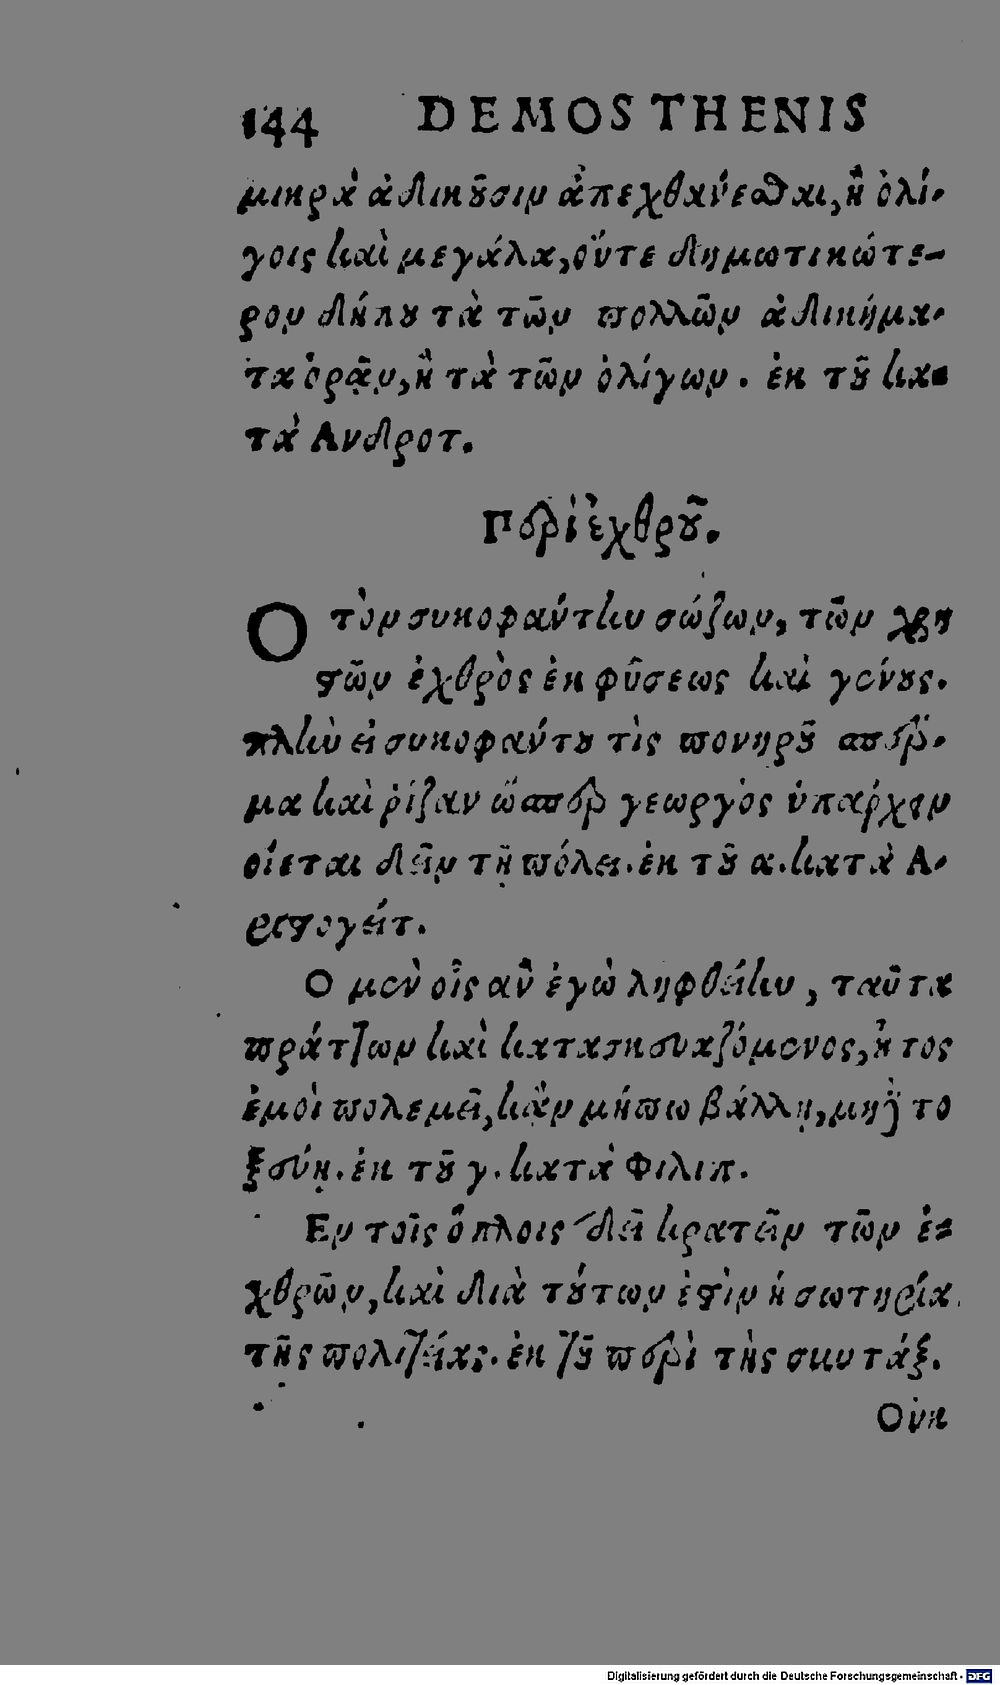 144 DEMOSTHENIS
μικρὰ ἀδικοῦσιν ἀπεχθάνεσθαι, ἢ ὀλί-
γοις καὶ μεγάλα, οὔτε δημωτικώτε-
ρον δήπου τὰ τῶν πολλῶν ἀδικήμα-
τα ὁρᾷν, ἢ τὰ τῶν ὀλίγων. ἐκ τοῦ κα-
τὰ Ανδροτ.
Περὶ ἐχθροῦ.
Ο τὸν συκοφάντην σώζων, τῶν χρη
στῶν ἐχθρὸς ἐκ φύσεως καὶ γένους.
πλὴν εἰ συκοφάντου τὶς πονηροῦ σπέρ-
μα καὶ ῥίζαν ὥσπερ γεωργὸς ὑπάρχειν
οἴεται δεῖν τῇ πόλει. ἐκ τοῦ α. κατὰ Α-
ριστογείτ.
Ο μὲν οἷς ἂν ἐγὼ ληφθείην, ταῦτα
πράττων καὶ κατασκευαζόμενος, οὗτος
ἐμοὶ πολεμεῖ, κἂν μήπω βάλλῃ, μηδὲ το
ξεύῃ. ἐκ τοῦ γ. κατὰ Φιλιπ.
Εν τοῖς ὅπλοις δεῖ κρατεῖν τῶν ἐ-
χθρῶν, καὶ διὰ τούτων ἐστὶν ἡ σωτηρία
τῆς πολιτείας. ἐκ τοῦ περὶ τὴς συντάξ.
Οὐκ
Digitalisierung gefördert durch die Deutsche Forschungsgemeinschaft - DFG